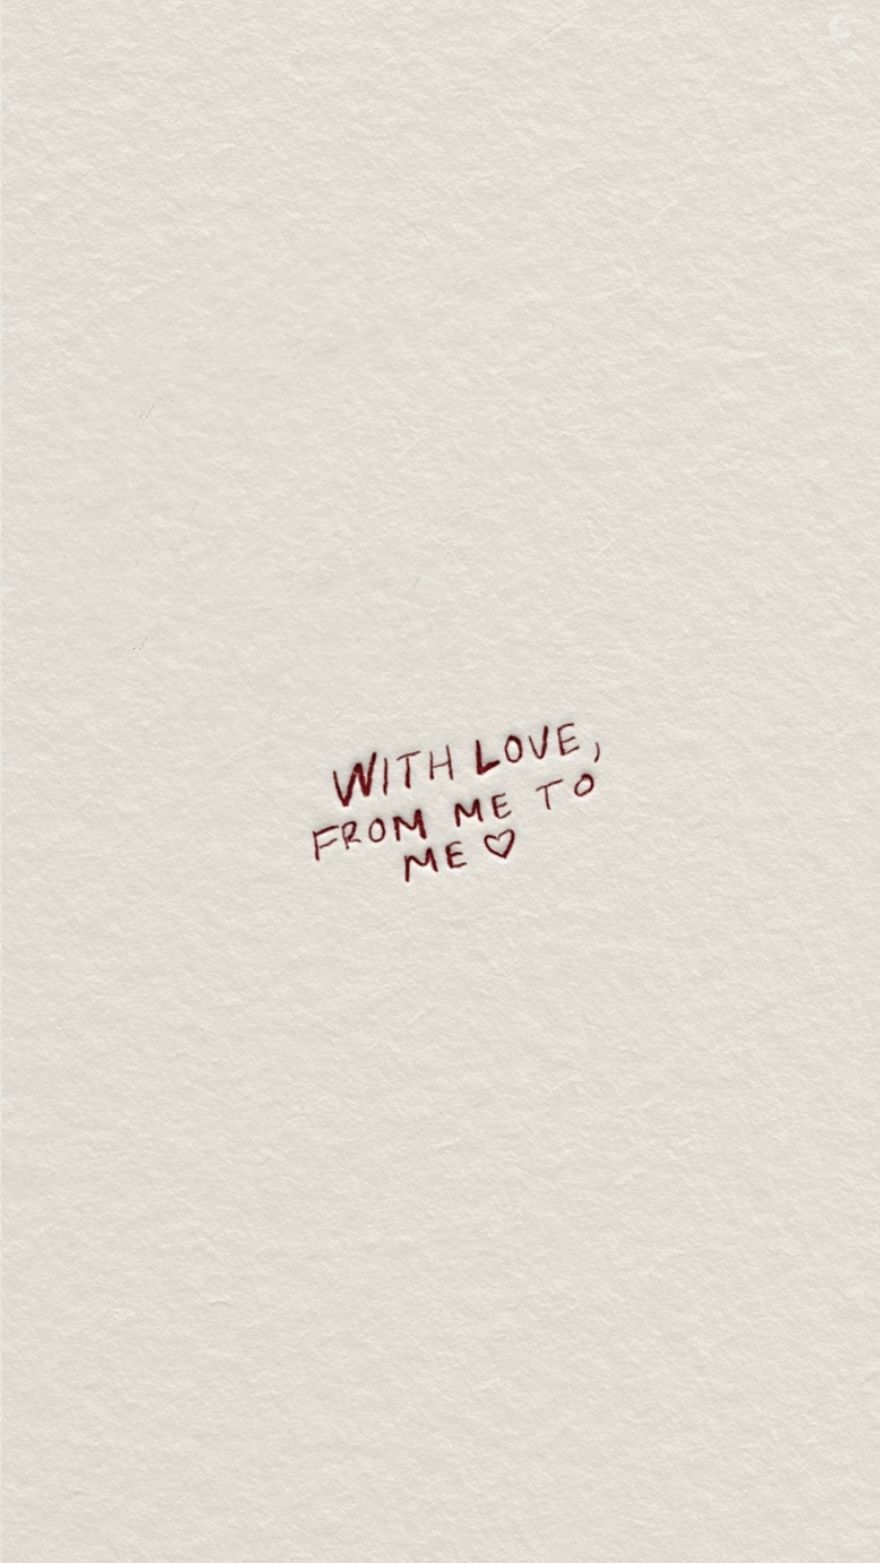 WITH LOVE,
FROM ME TO
ME ♡